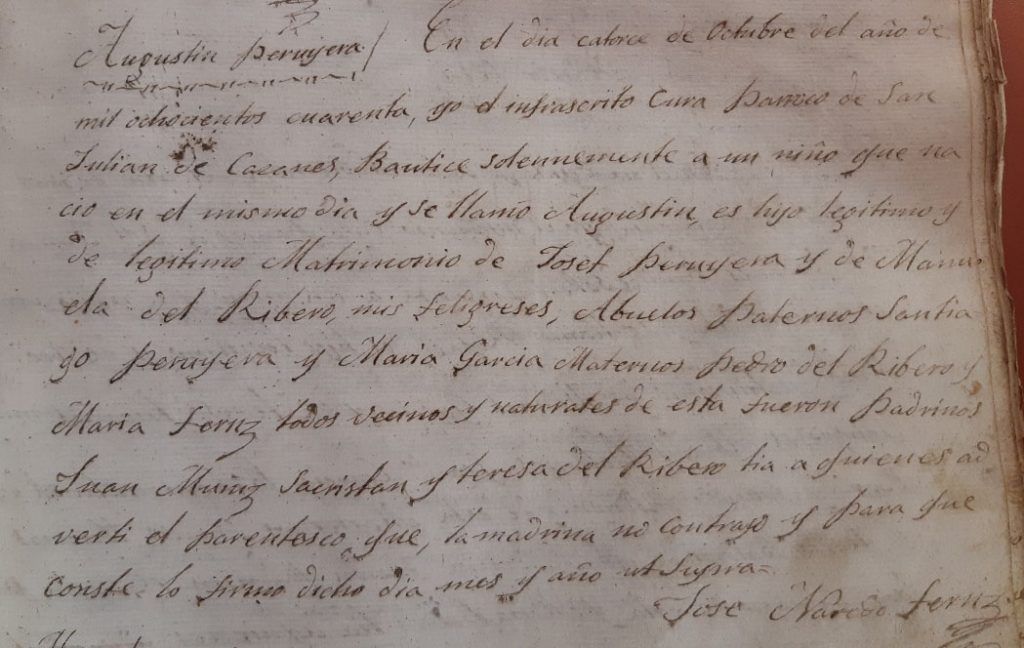 Augustin Peruyera / En el dia catorce de Octubre del año de
mil ochocientos cuarenta, yo el infrascrito Cura Parroco de San
Julian de Cazanes, Bautice solennemente a un niño que na
cio en el mismo dia y se llamo Augustin, es hijo legitimo y
de legitimo Matrimonio de Josef Peruyera y de Manu-
ela del Ribero, mis feligreses, Abuelos Paternos Santia
go Peruyera y Maria Garcia Maternos Pedro del Ribero y
Maria Fernz todos vecinos y naturales de esta fueron Padrinos
Juan Muñiz Sacristan y teresa del Ribero tia a quienes ad
verti el parentesco que, la madrina no contrago y para que
conste lo firmo dicho dia mes y año ut Supra=
Jose Naredo Fernz